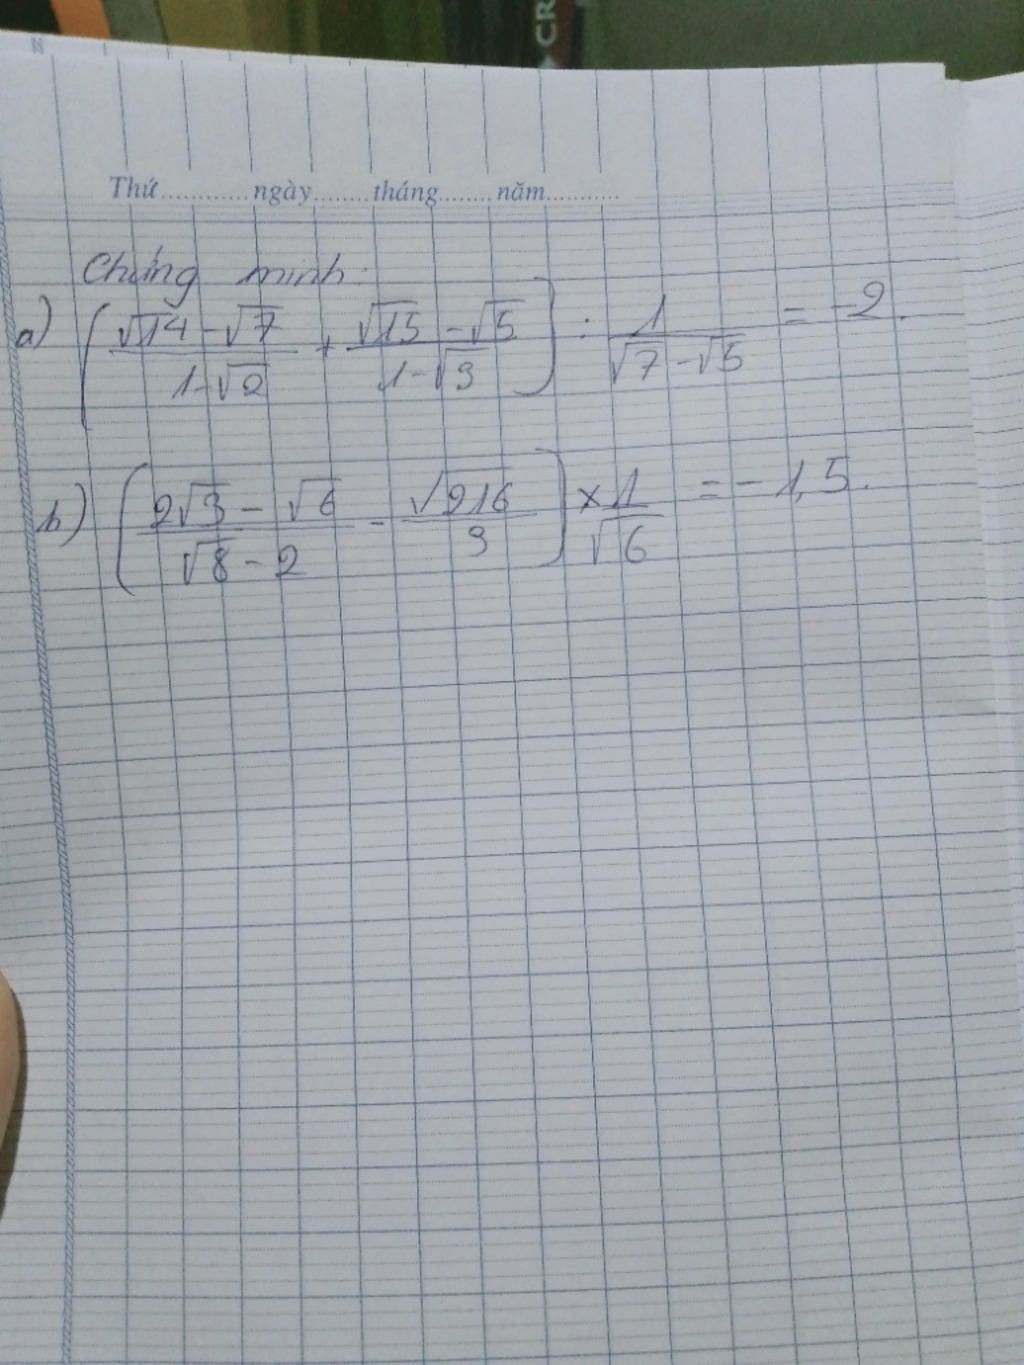 CR
Thứ............ngày........tháng........năm...........
Chứng minh:
a) [(√14 - √7)/(1-√2) + (√15 - √5)/(1-√3)] : 1/(√7 - √5) = -2.
b) [(2√3 - √6)/(√8 - 2) - √216/3] × 1/√6 = -1,5.